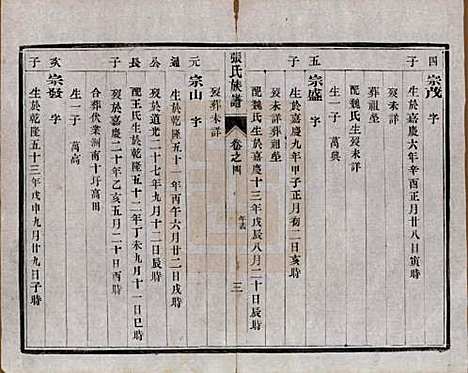 四 宗茂 字
子 生於嘉慶六年辛酉正月廿八日寅時
歿未詳
葬祖塋
配魏氏生歿未詳
生一子 萬興
五 宗盛 字
子 生於嘉慶九年甲子正月初二日亥時
歿未詳葬祖塋
配魏氏生於嘉慶十三年戊辰八月二十日辰時
歿葬未詳
張氏族譜 卷之四 三
元 宗山 字
通 生於乾隆五十一年丙午六月廿二日戌時
公 歿於道光二十七年九月十二日辰時
長 配王氏生於乾隆五十二年丁未九月十一日巳時
子 歿於嘉慶二十年乙亥五月二十日酉時
合葬伏業洲南十圩高田
生一子 萬高
亥 宗發 字
子 生於乾隆五十三年戊申九月廿九日子時